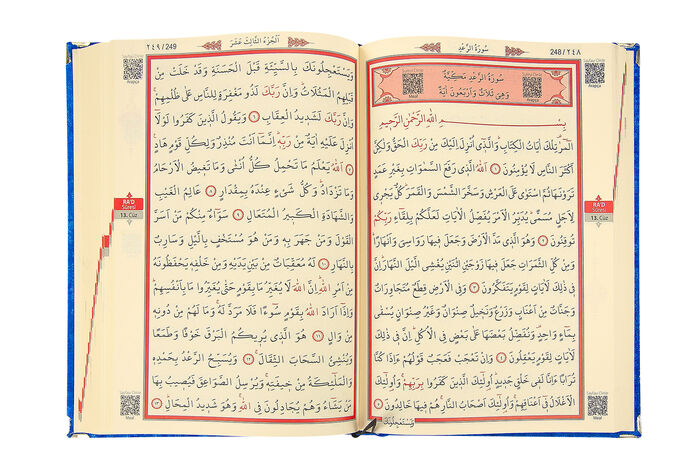 سُورَةُ الرَّعْدِ
248/٢٤٨
Sayfayı Dinle
Arapça
سُورَةُ الرَّعْدِ مَكِّيَّةٌ
وَهِيَ ثَلَاثٌ وَاَرْبَعُونَ اٰيَةً
Meal
Arapça
بِسْمِ اللّٰهِ الرَّحْمٰنِ الرَّحِيمِ
الٓمٓرٰ۠ تِلْكَ اٰيَاتُ الْكِتَابِۜ وَالَّذٓي اُنْزِلَ اِلَيْكَ مِنْ رَبِّكَ الْحَقُّ وَلٰكِنَّ
اَكْثَرَ النَّاسِ لَا يُؤْمِنُونَ ١ اَللّٰهُ الَّذٓي رَفَعَ السَّمٰوَاتِ بِغَيْرِ عَمَدٍ
تَرَوْنَهَا ثُمَّ اسْتَوٰى عَلَى الْعَرْشِ وَسَخَّرَ الشَّمْسَ وَالْقَمَرَۜ كُلٌّ يَجْرٓي
لِاَجَلٍ مُسَمًّىۜ يُدَبِّرُ الْاَمْرَ يُفَصِّلُ الْاٰيَاتِ لَعَلَّكُمْ بِلِقَٓاءِ رَبِّكُمْ
تُوقِنُونَ ٢ وَهُوَ الَّذٓي مَدَّ الْاَرْضَ وَجَعَلَ فٖيهَا رَوَاسِيَ وَاَنْهَارًاۜ
وَمِنْ كُلِّ الثَّمَرَاتِ جَعَلَ فٖيهَا زَوْجَيْنِ اثْنَيْنِ يُغْشِي الَّيْلَ النَّهَارَۜ اِنَّ
فٖي ذٰلِكَ لَاٰيَاتٍ لِقَوْمٍ يَتَفَكَّرُونَ ٣ وَفِي الْاَرْضِ قِطَعٌ مُتَجَاوِرَاتٌ
وَجَنَّاتٌ مِنْ اَعْنَابٍ وَزَرْعٌ وَنَخٖيلٌ صِنْوَانٌ وَغَيْرُ صِنْوَانٍ يُسْقٰى
بِمَٓاءٍ وَاحِدٍ وَنُفَضِّلُ بَعْضَهَا عَلٰى بَعْضٍ فِي الْاُكُلِۜ اِنَّ فٖي ذٰلِكَ
لَاٰيَاتٍ لِقَوْمٍ يَعْقِلُونَ ٤ وَاِنْ تَعْجَبْ فَعَجَبٌ قَوْلُهُمْ ءَاِذَا كُنَّا
تُرَابًا ءَاِنَّا لَفٖي خَلْقٍ جَدٖيدٍۜ اُو۬لٰٓئِكَ الَّذٖينَ كَفَرُوا بِرَبِّهِمْۚ وَاُو۬لٰٓئِكَ
الْاَغْلَالُ فٖٓي اَعْنَاقِهِمْۚ وَاُو۬لٰٓئِكَ اَصْحَابُ النَّارِۚ هُمْ فٖيهَا خَالِدُونَ ٥
وَيَسْتَعْجِلُونَكَ
RA'D
Sûresi
13. Cüz
Meal
اَلْجُزْءُ الثَّالِثَ عَشَرَ
٢٤٩/249
Sayfayı Dinle
Arapça
وَيَسْتَعْجِلُونَكَ بِالسَّيِّئَةِ قَبْلَ الْحَسَنَةِ وَقَدْ خَلَتْ مِنْ
قَبْلِهِمُ الْمَثُلَاتُۜ وَاِنَّ رَبَّكَ لَذُو مَغْفِرَةٍ لِلنَّاسِ عَلٰى ظُلْمِهِمْۚ
وَاِنَّ رَبَّكَ لَشَدٖيدُ الْعِقَابِ ٦ وَيَقُولُ الَّذٖينَ كَفَرُوا لَوْلَٓا
اُنْزِلَ عَلَيْهِ اٰيَةٌ مِنْ رَبِّهٖۜ اِنَّمَٓا اَنْتَ مُنْذِرٌ وَلِكُلِّ قَوْمٍ هَادٍ
٧ اَللّٰهُ يَعْلَمُ مَا تَحْمِلُ كُلُّ اُنْثٰى وَمَا تَغٖيضُ الْاَرْحَامُ
وَمَا تَزْدَادُۜ وَكُلُّ شَيْءٍ عِنْدَهُ بِمِقْدَارٍ ٨ عَالِمُ الْغَيْبِ
وَالشَّهَادَةِ الْكَبٖيرُ الْمُتَعَالِ ٩ سَوَٓاءٌ مِنْكُمْ مَنْ اَسَرَّ
الْقَوْلَ وَمَنْ جَهَرَ بِهٖ وَمَنْ هُوَ مُسْتَخْفٍ بِالَّيْلِ وَسَارِبٌ
بِالنَّهَارِ ١٠ لَهُ مُعَقِّبَاتٌ مِنْ بَيْنِ يَدَيْهِ وَمِنْ خَلْفِهٖ يَحْفَظُونَهُ
مِنْ اَمْرِ اللّٰهِۜ اِنَّ اللّٰهَ لَا يُغَيِّرُ مَا بِقَوْمٍ حَتّٰى يُغَيِّرُوا مَا بِاَنْفُسِهِمْۜ
وَاِذَٓا اَرَادَ اللّٰهُ بِقَوْمٍ سُٓوءًا فَلَا مَرَدَّ لَهُۚ وَمَا لَهُمْ مِنْ دُونِهٖ
مِنْ وَالٍ ١١ هُوَ الَّذٖي يُرٖيكُمُ الْبَرْقَ خَوْفًا وَطَمَعًا
وَيُنْشِئُ السَّحَابَ الثِّقَالَۚ ١٢ وَيُسَبِّحُ الرَّعْدُ بِحَمْدِهٖ
وَالْمَلٰٓئِكَةُ مِنْ خٖيفَتِهٖۚ وَيُرْسِلُ الصَّوَاعِقَ فَيُصٖيبُ بِهَا
مَنْ يَشَٓاءُ وَهُمْ يُجَادِلُونَ فِي اللّٰهِۚ وَهُوَ شَدٖيدُ الْمِحَالِ ١٣
RA'D
Sûresi
13. Cüz
Meal